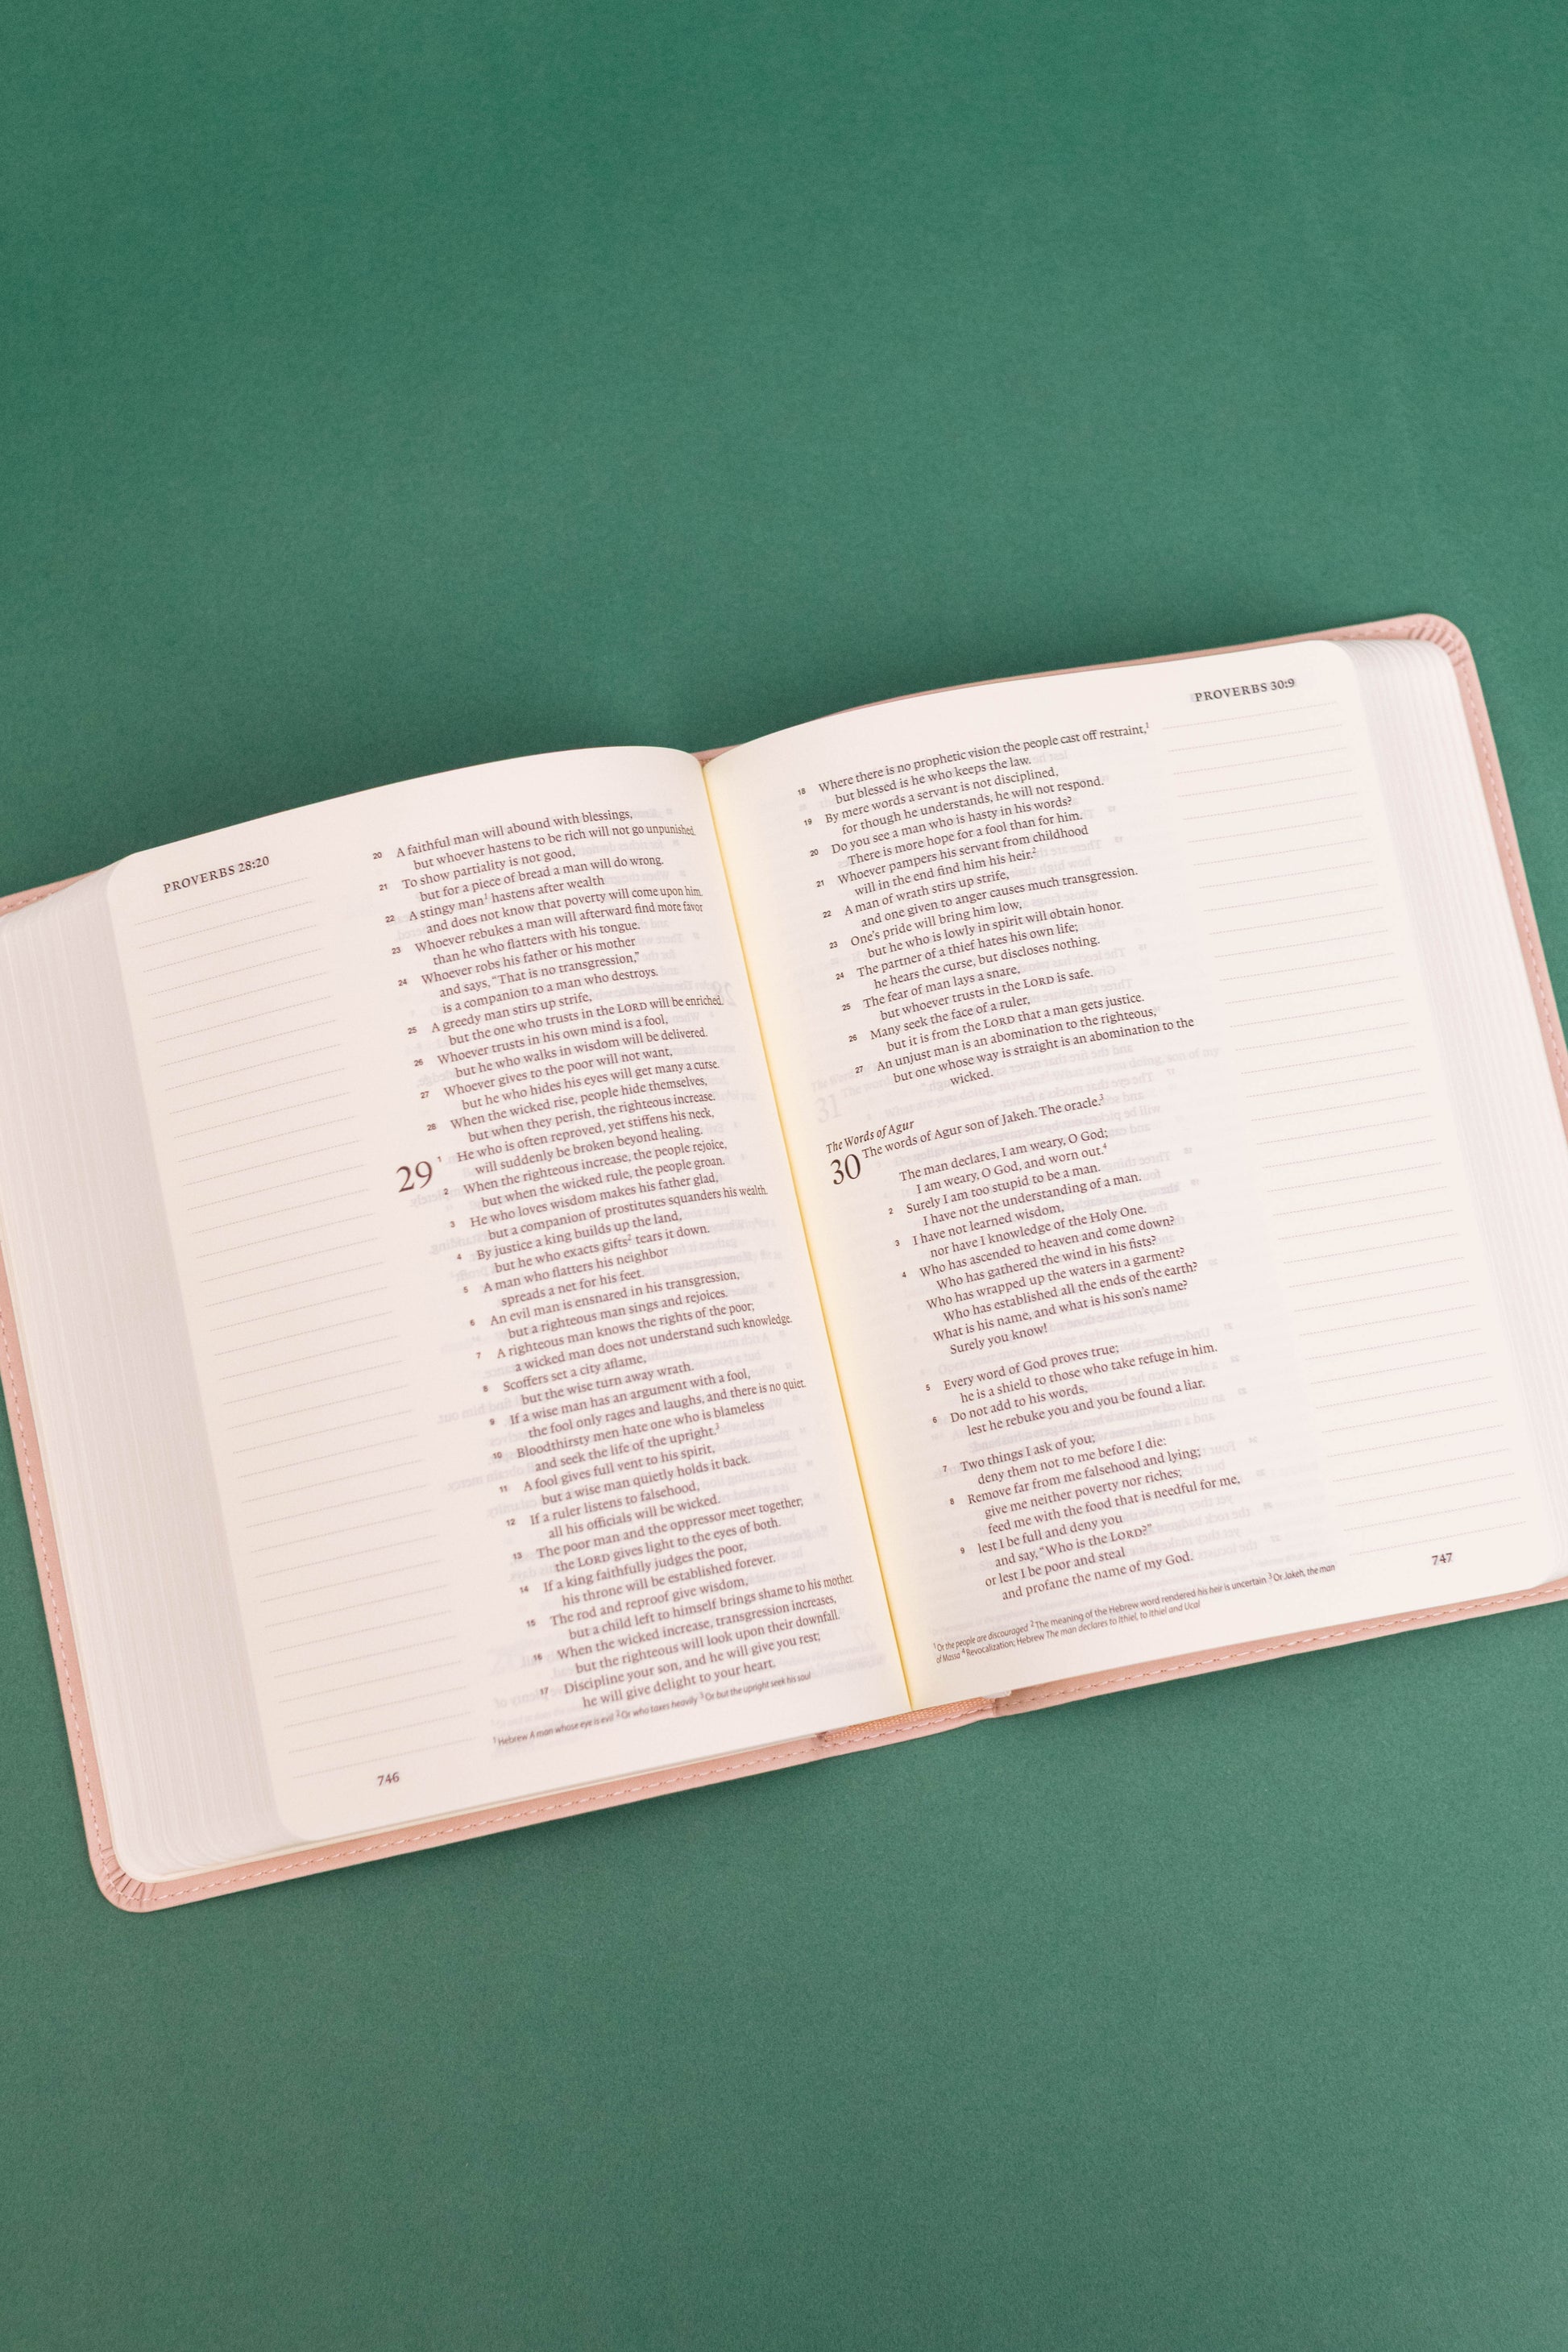 PROVERBS 28:20
20 A faithful man will abound with blessings,
but whoever hastens to be rich will not go unpunished.
21 To show partiality is not good,
but for a piece of bread a man will do wrong.
22 A stingy man¹ hastens after wealth
and does not know that poverty will come upon him.
23 Whoever rebukes a man will afterward find more favor
than he who flatters with his tongue.
24 Whoever robs his father or his mother
and says, “That is no transgression,”
is a companion to a man who destroys.
25 A greedy man stirs up strife,
but the one who trusts in the LORD will be enriched.
26 Whoever trusts in his own mind is a fool,
but he who walks in wisdom will be delivered.
27 Whoever gives to the poor will not want,
but he who hides his eyes will get many a curse.
28 When the wicked rise, people hide themselves,
but when they perish, the righteous increase.
29 1 He who is often reproved, yet stiffens his neck,
will suddenly be broken beyond healing.
2 When the righteous increase, the people rejoice,
but when the wicked rule, the people groan.
3 He who loves wisdom makes his father glad,
but a companion of prostitutes squanders his wealth.
4 By justice a king builds up the land,
but he who exacts gifts² tears it down.
5 A man who flatters his neighbor
spreads a net for his feet.
6 An evil man is ensnared in his transgression,
but a righteous man sings and rejoices.
7 A righteous man knows the rights of the poor;
a wicked man does not understand such knowledge.
8 Scoffers set a city aflame,
but the wise turn away wrath.
9 If a wise man has an argument with a fool,
the fool only rages and laughs, and there is no quiet.
10 Bloodthirsty men hate one who is blameless
and seek the life of the upright.³
11 A fool gives full vent to his spirit,
but a wise man quietly holds it back.
12 If a ruler listens to falsehood,
all his officials will be wicked.
13 The poor man and the oppressor meet together;
the LORD gives light to the eyes of both.
14 If a king faithfully judges the poor,
his throne will be established forever.
15 The rod and reproof give wisdom,
but a child left to himself brings shame to his mother.
16 When the wicked increase, transgression increases,
but the righteous will look upon their downfall.
17 Discipline your son, and he will give you rest;
he will give delight to your heart.
¹ Hebrew A man whose eye is evil ² Or who taxes heavily ³ Or but the upright seek his soul
746
PROVERBS 30:9
18 Where there is no prophetic vision the people cast off restraint,¹
but blessed is he who keeps the law.
19 By mere words a servant is not disciplined,
for though he understands, he will not respond.
20 Do you see a man who is hasty in his words?
There is more hope for a fool than for him.
21 Whoever pampers his servant from childhood
will in the end find him his heir.²
22 A man of wrath stirs up strife,
and one given to anger causes much transgression.
23 One's pride will bring him low,
but he who is lowly in spirit will obtain honor.
24 The partner of a thief hates his own life;
he hears the curse, but discloses nothing.
25 The fear of man lays a snare,
but whoever trusts in the LORD is safe.
26 Many seek the face of a ruler,
but it is from the LORD that a man gets justice.
27 An unjust man is an abomination to the righteous,
but one whose way is straight is an abomination to the
wicked.
The Words of Agur
30 The words of Agur son of Jakeh. The oracle.³
The man declares, I am weary, O God;
I am weary, O God, and worn out.⁴
2 Surely I am too stupid to be a man.
I have not the understanding of a man.
3 I have not learned wisdom,
nor have I knowledge of the Holy One.
4 Who has ascended to heaven and come down?
Who has gathered the wind in his fists?
Who has wrapped up the waters in a garment?
Who has established all the ends of the earth?
What is his name, and what is his son's name?
Surely you know!
5 Every word of God proves true;
he is a shield to those who take refuge in him.
6 Do not add to his words,
lest he rebuke you and you be found a liar.
7 Two things I ask of you;
deny them not to me before I die:
8 Remove far from me falsehood and lying;
give me neither poverty nor riches;
feed me with the food that is needful for me,
9 lest I be full and deny you
and say, “Who is the LORD?”
or lest I be poor and steal
and profane the name of my God.
¹ Or the people are discouraged ² The meaning of the Hebrew word rendered his heir is uncertain ³ Or Jakeh, the man
of Massa ⁴ Revocalization; Hebrew The man declares to Ithiel, to Ithiel and Ucal
747